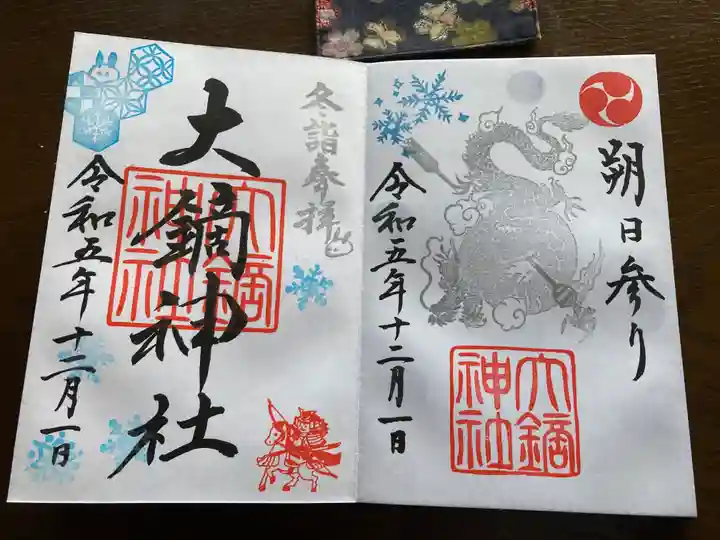 朔日参り
令和五年十二月一日
大鏑神社
冬詣奉拝
大鏑神社
大鏑神社
令和五年十二月一日